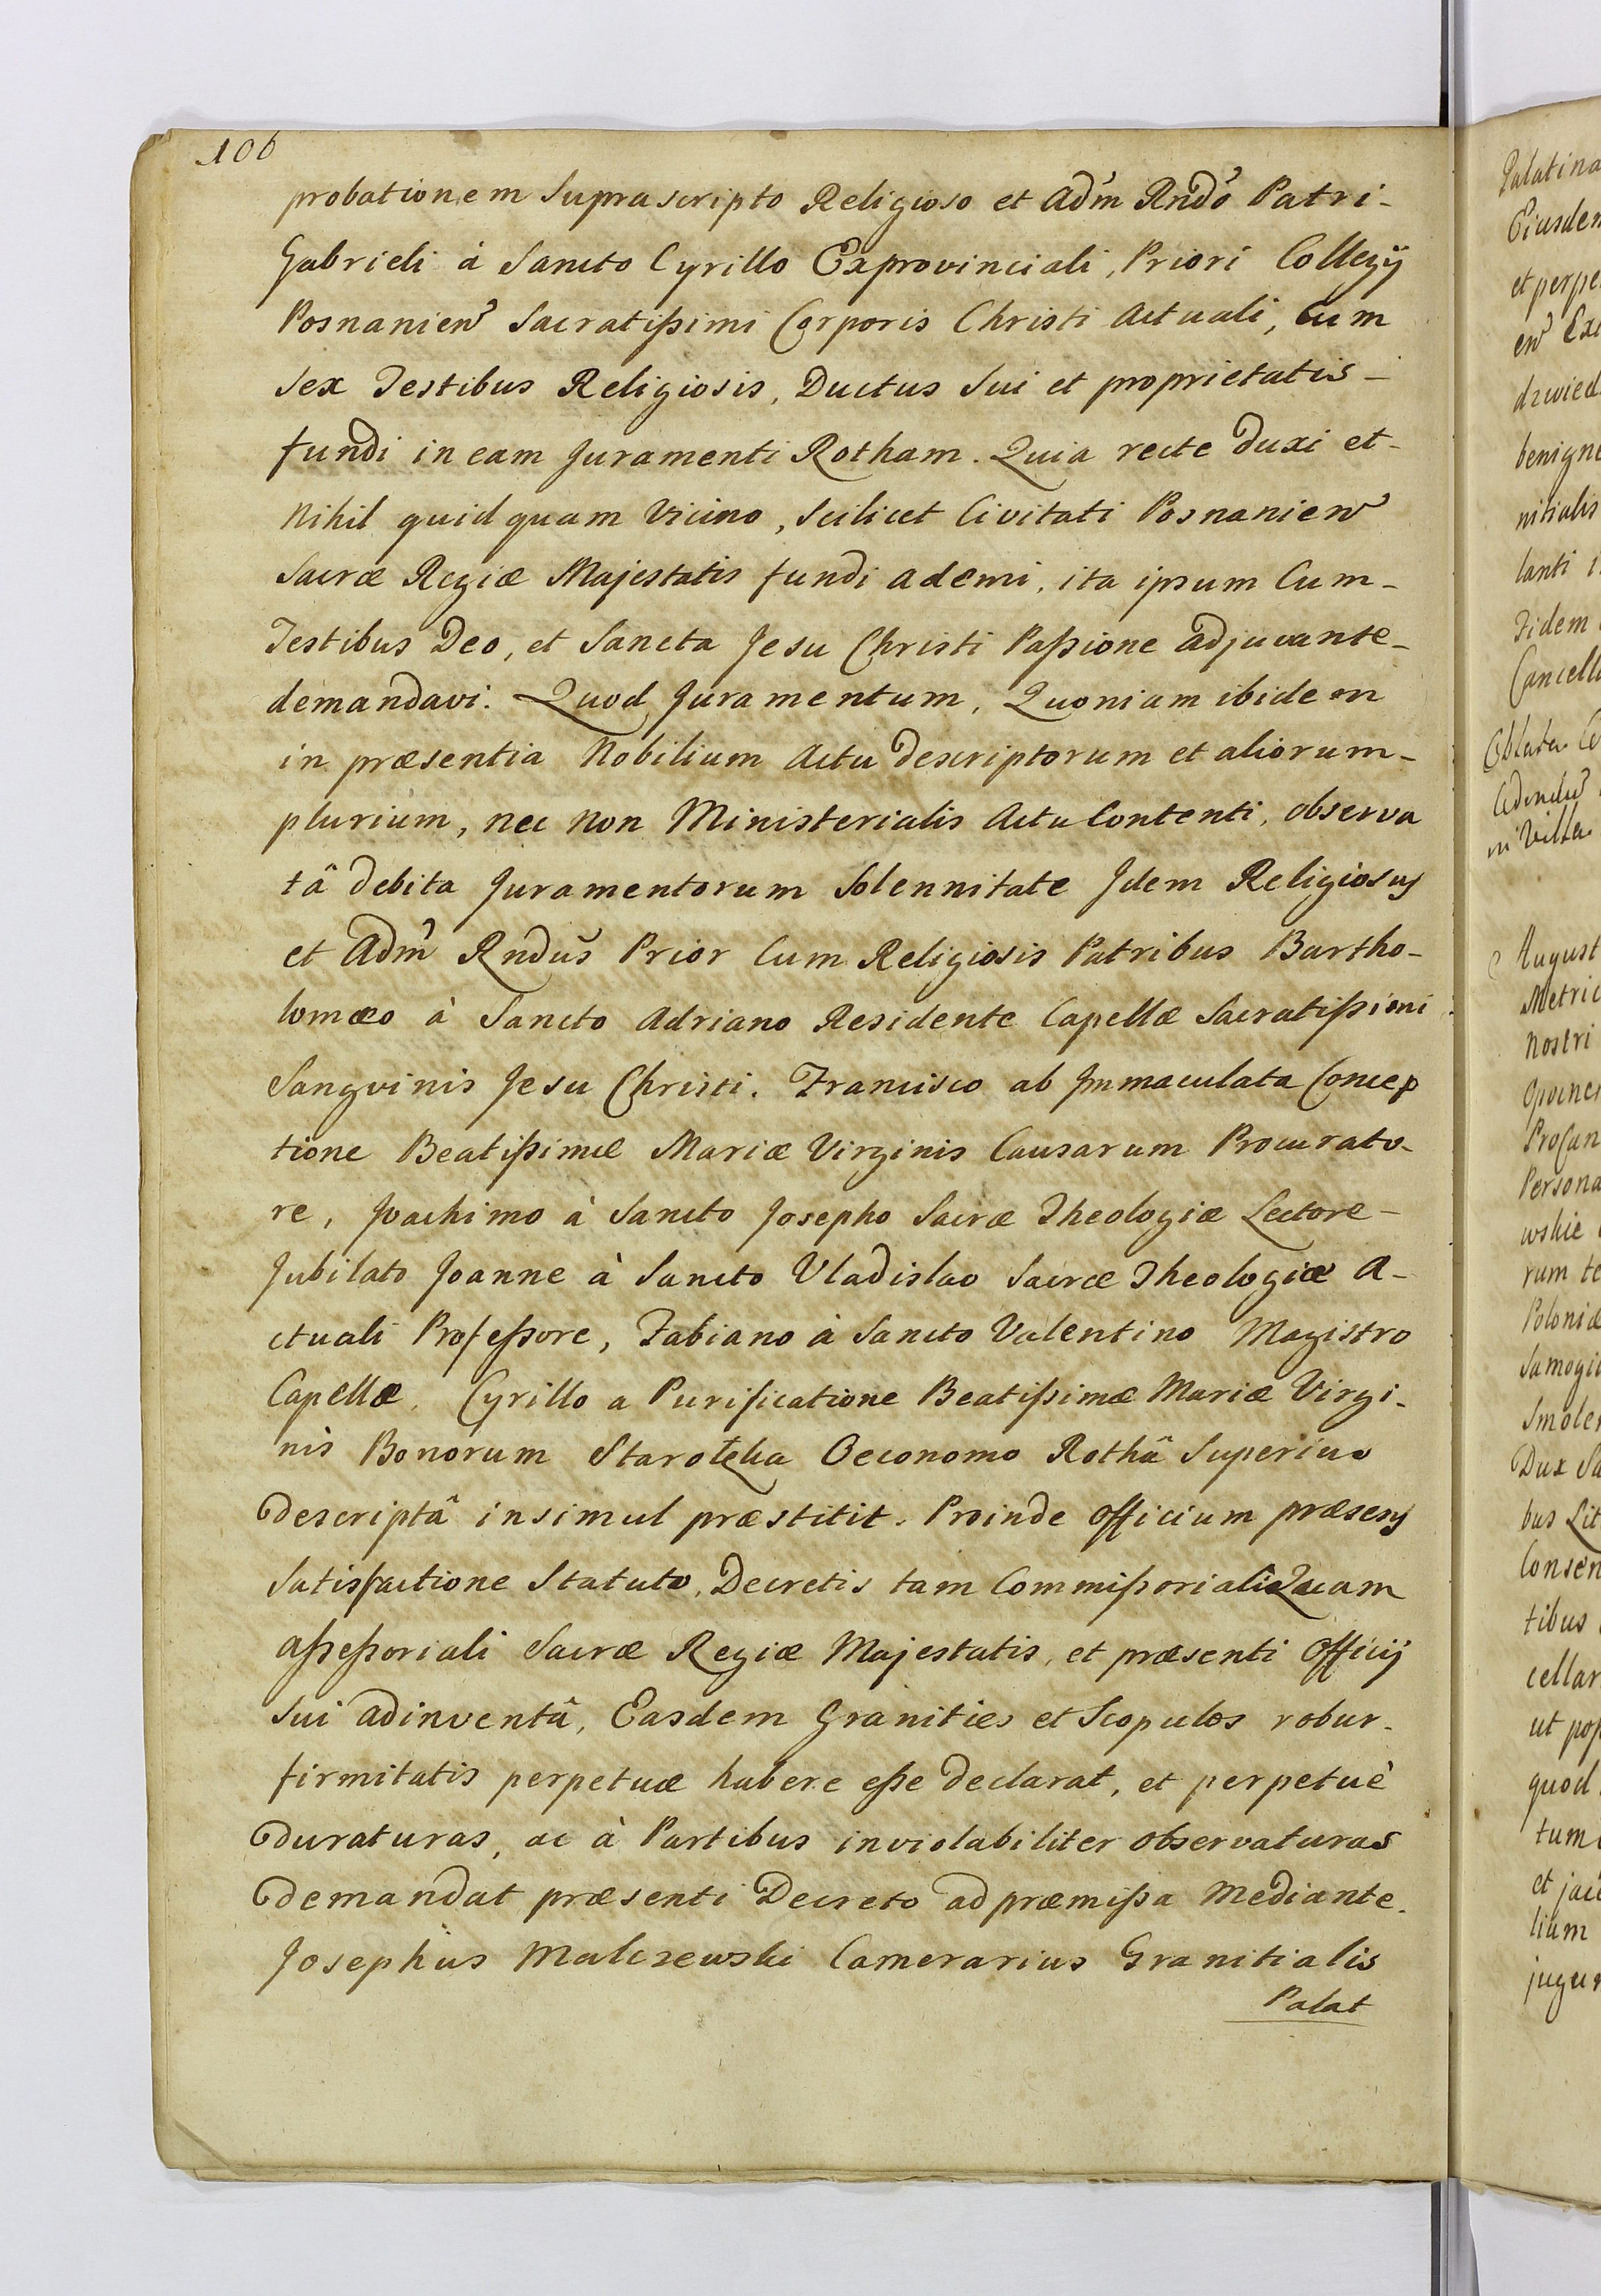 106
probationem Suprascripto Religioso et Adm̃ Rndõ Patri-
Gabrieli à Sancto Cyrillo Exprovinciali, Priori Collegÿ
Posnanien̄ Sacratißimi Corporis Christi Actuali, Cum
Sex Testibus Religiosis, Ductus Sui et proprietatis-
fundi in eam Juramenti Rotham. Quia recte duxi et-
Nihil quidquam Vicino, Scilicet Civitati Posnanien̄
Sacræ Regiæ Majestatis fundi ademi, ita ipsum Cum-
Testibus Deo, et Sancta Jesu Christi Paßione adjuvante-
demandavi. Quod Juramentum, Quoniam ibidem
in præsentia Nobilium Actu descriptorum et aliorum-
plurium, nec non Ministerialis Actu Contenti, observa
tâ debita Juramentorum Solennitate Jdem Religiosus
et Adm̃ Rndūs Prior Cum Religiosis Patribus Bartho-
lomæo à Sancto Adriano Residente Capellæ Sacratißimi
Sangvinis Jesu Christi. Francisco ab Jmmaculata Concep
tione Beatißimæ Mariæ Virginis Causarum Procurato-
re, Joachimo à Sancto Josepho Sacræ Theologiæ Lectore-
Jubilato Joanne à Sancto Vladislao Sacræ Theologiæ A-
ctuali Profeßore, Fabiano à Sancto Valentino Magistro
Capellæ, Cyrillo a Purificatione Beatißimæ Mariæ Virgi-
nis Bonorum Starołęka Oeconomo Rothâ Superius
descriptâ insimul præstitit. Proinde Officium præsens
Satisfactione Statuto, Decretis tam Commißoriali Quam
aßeßoriali Sacræ Regiæ Majestatis, et præsenti Officÿ
Sui adinventâ, Easdem Granities et Scopulos robur-
firmitatis perpetuæ habere eße declarat, et perpetuè
duraturas, ac à Partibus inviolabiliter observaturas
demandat præsenti Decreto ad præmißa Mediante.
Josephus Malczewski Camerarius Granitialis
Palat
Palatina
Eiusdem
et perpe
en̄ Exe
benigne
nitialis
lanti i
Fidem
Cancella
Oblata
in Villa
August
Metric
Nostri
ProCan
Persona
wskie
rum te
Poloniæ
Samogi
Smolen
Dux Sa
bus Lit
Consen
tibus
cellar
ut pos
quod
tum
et jac
lium
juger